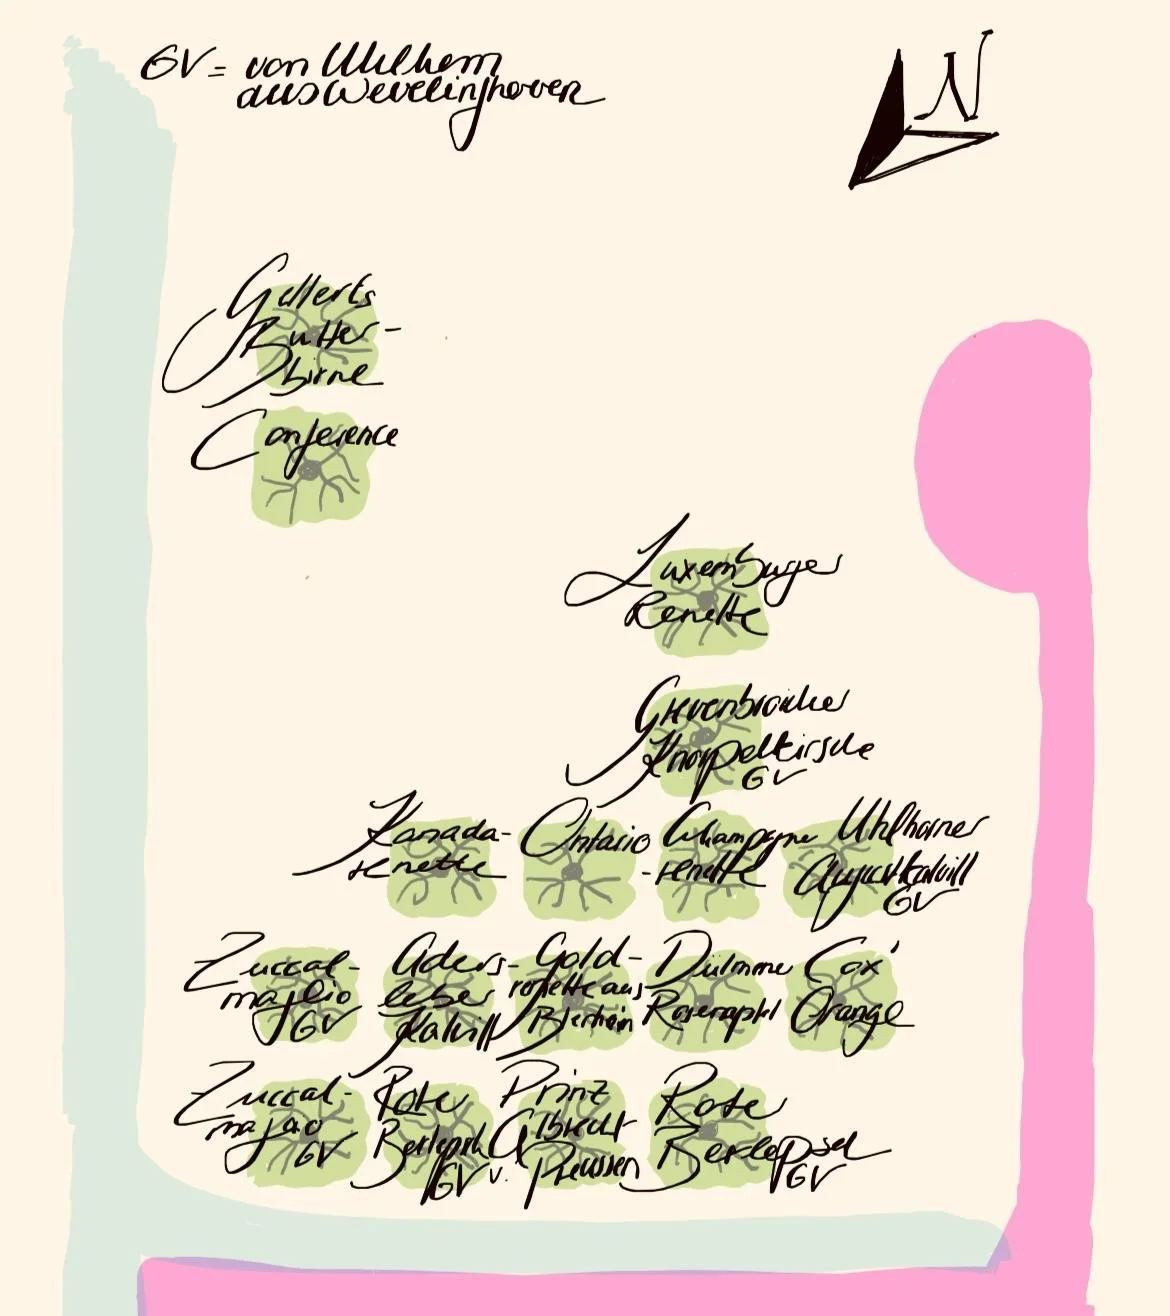 GV = von Uhlhorn
aus Wevelinghoven
N
Gellerts
Butter-
birne
Conference
Luxemburger
Renette
Grevenbroicher
Knorpelkirsche
GV
Kanada-
renette
Ontario
Champagner
-renette
Uhlhorner
Augustkalvill
GV
Zuccal-
maglio
GV
Aders-
leber
Kalvill
Gold-
renette aus
Blenheim
Dülmme
Rosenapfel
Cox'
Orange
Zuccal-
maglio
GV
Rote
Berlepsch
GV
Prinz
Albrecht
v. Preussen
Rote
Berlepsch
GV